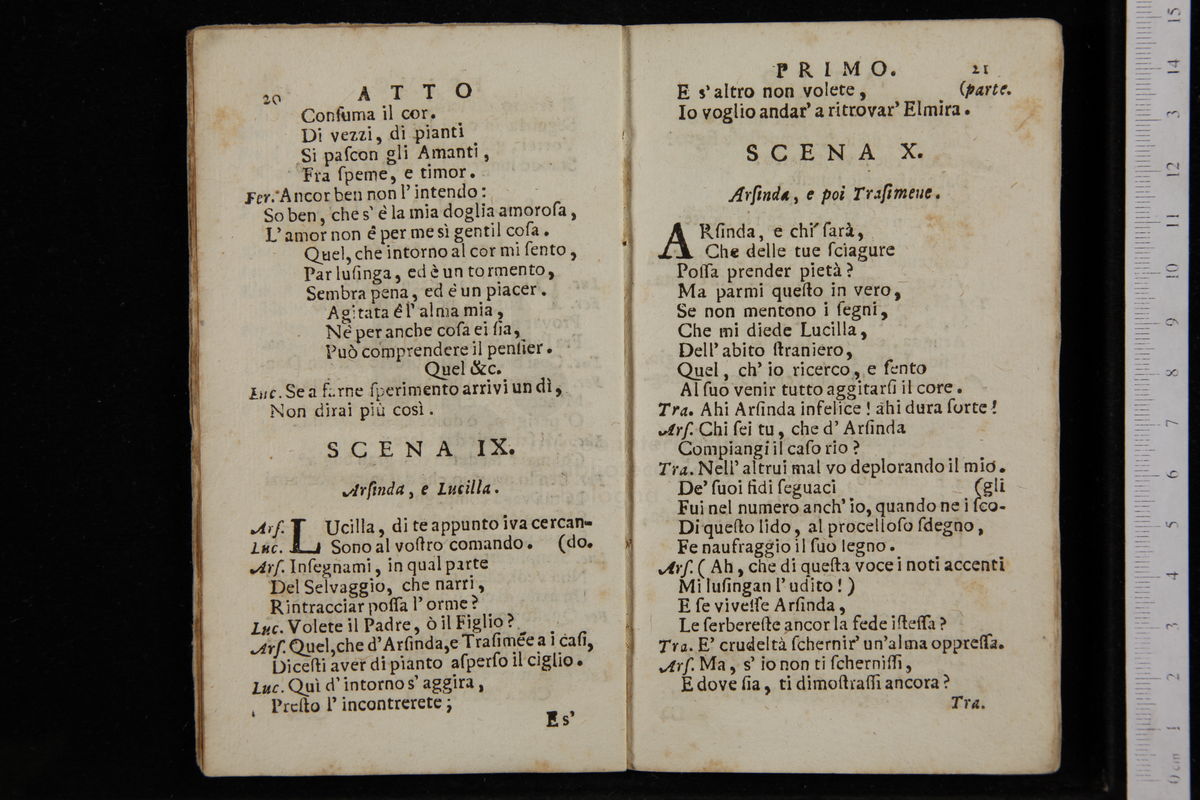 20 ATTO
Conſuma il cor.
Di vezzi, di pianti
Si paſcon gli Amanti,
Fra ſpeme, e timor.
Fer. Ancor ben non l' intendo:
So ben, che s' è la mia doglia amoroſa,
L' amor non è per me sì gentil coſa.
Quel, che intorno al cor mi ſento,
Par luſinga, ed è un tormento,
Sembra pena, ed è un piacer.
Agitata è l' alma mia,
Nè per anche coſa ei ſia,
Può comprendere il penſier.
Quel &c.
Luc. Se a farne ſperimento arrivi un dì,
Non dirai più così.
SCENA IX.
Arſinda, e Lucilla.
Arſ. LUcilla, di te appunto iva cercan-
Luc. Sono al voſtro comando. (do.
Arſ. Inſegnami, in qual parte
Del Selvaggio, che narri,
Rintracciar poſſa l' orme?
Luc. Volete il Padre, ò il Figlio?
Arſ. Quel, che d' Arſinda, e Traſimée a i caſi,
Diceſti aver di pianto aſperſo il ciglio.
Luc. Quì d' intorno s' aggira,
Preſto l' incontrerete;
E s'
PRIMO. 21
E s' altro non volete, (parte.
Io voglio andar' a ritrovar' Elmira.
SCENA X.
Arſinda, e poi Traſimeue.
ARſinda, e chi ſarà,
Che delle tue ſciagure
Poſſa prender pietà?
Ma parmi queſto in vero,
Se non mentono i ſegni,
Che mi diede Lucilla,
Dell' abito ſtraniero,
Quel, ch' io ricerco, e ſento
Al ſuo venir tutto aggitarſi il core.
Tra. Ahi Arſinda infelice! ahi dura ſorte!
Arſ. Chi ſei tu, che d' Arſinda
Compiangi il caſo rio?
Tra. Nell' altrui mal vo deplorando il mio.
De' ſuoi fidi ſeguaci (gli
Fui nel numero anch' io, quando ne i ſco-
Di queſto lido, al procelloſo ſdegno,
Fe naufraggio il ſuo legno.
Arſ. ( Ah, che di queſta voce i noti accenti
Mi luſingan l' udito! )
E ſe viveſſe Arſinda,
Le ſerbereſte ancor la fede iſteſſa?
Tra. E' crudeltà ſchernir' un' alma oppreſſa.
Arſ. Ma, s' io non ti ſcherniſſi,
E dove ſia, ti dimoſtraſſi ancora?
Tra.
15
14
13
12
11
10
9
8
7
6
5
4
3
2
1
0 cm